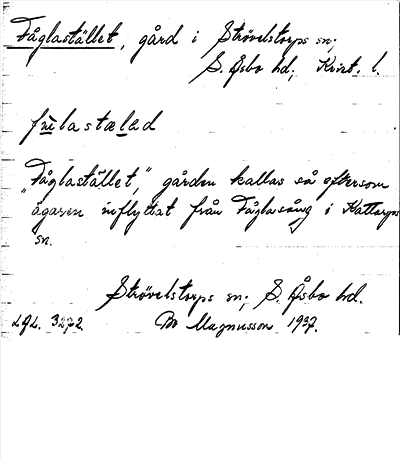 Fåglastället, gård i Strövelstorps sn;
S. Åsbo hd; Krist. l.
fúlastælad
"Fåglastället," gården kallas så eftersom
ägaren inflyttat från Fåglasång i Kattarps
sn.
Strövelstorps sn; S. Åsbo hd.
LGL. 3272. Bo Magnusson 1937.